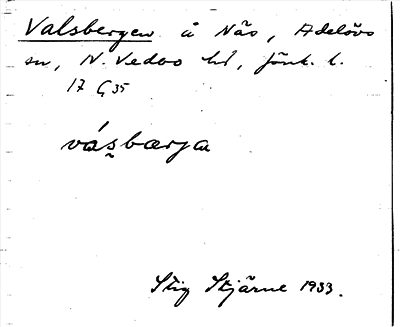 Valsbergen å Näs, Adelövs
sn, N. Vedbo hd, Jönk. l.
17 G 35
vásbærja
Stig Stjärne 1933.